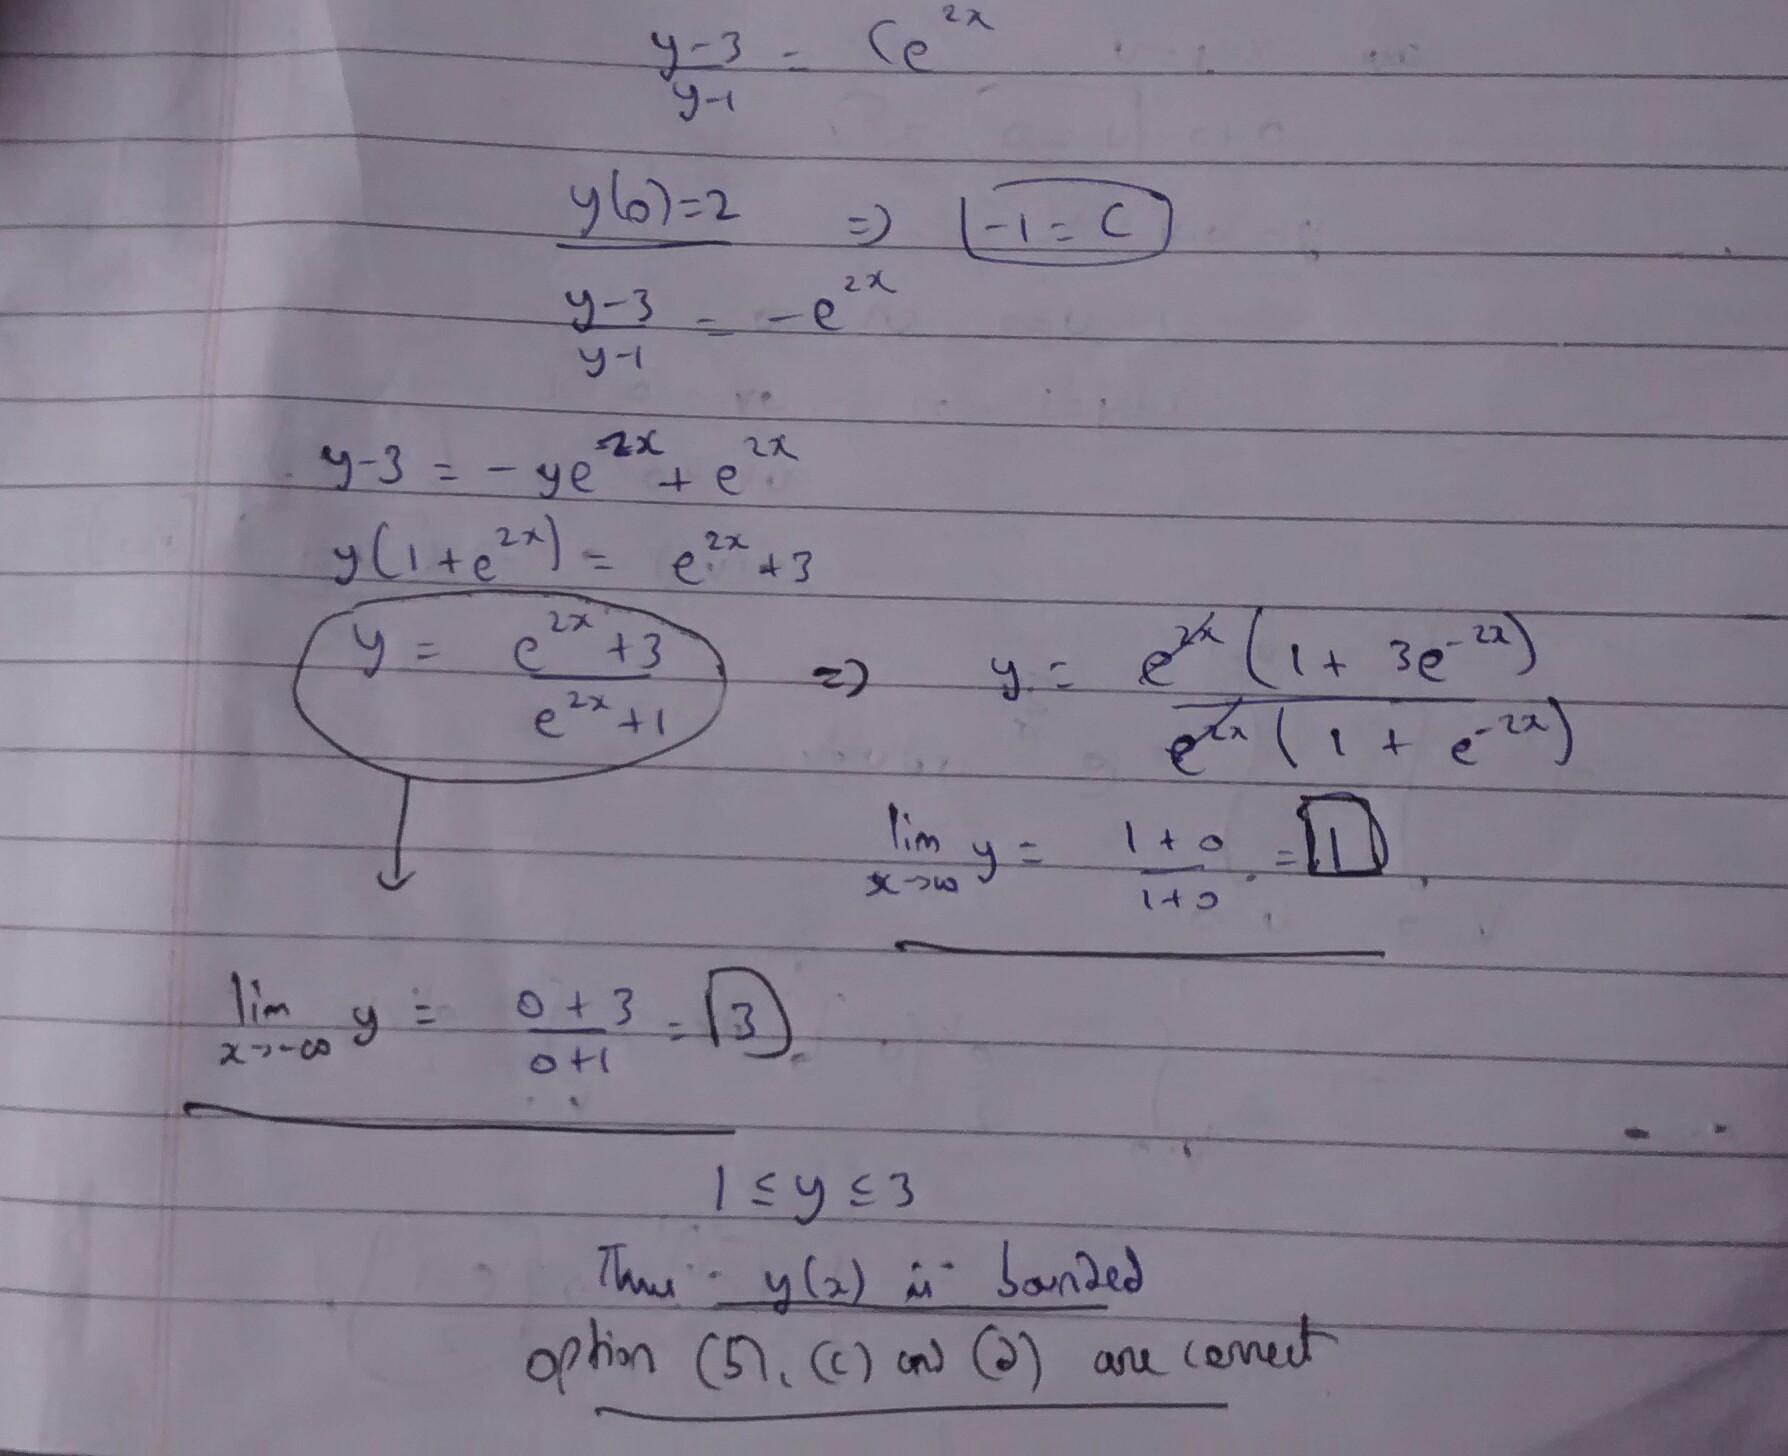 y-3 / y-1 = Ce^2x
y(0)=2 => -1 = C
y-3 / y-1 = -e^2x
y-3 = -ye^2x + e^2x
y(1+e^2x) = e^2x +3
y = e^2x +3 / e^2x +1 => y = e^2x (1 + 3e^-2x) / e^2x (1 + e^-2x)
lim x→∞ y = 1+0 / 1+0 = 1
lim x→-∞ y = 0+3 / 0+1 = 3
1 ≤ y ≤ 3
Thus y(x) is bounded
option (b), (c) and (d) are correct